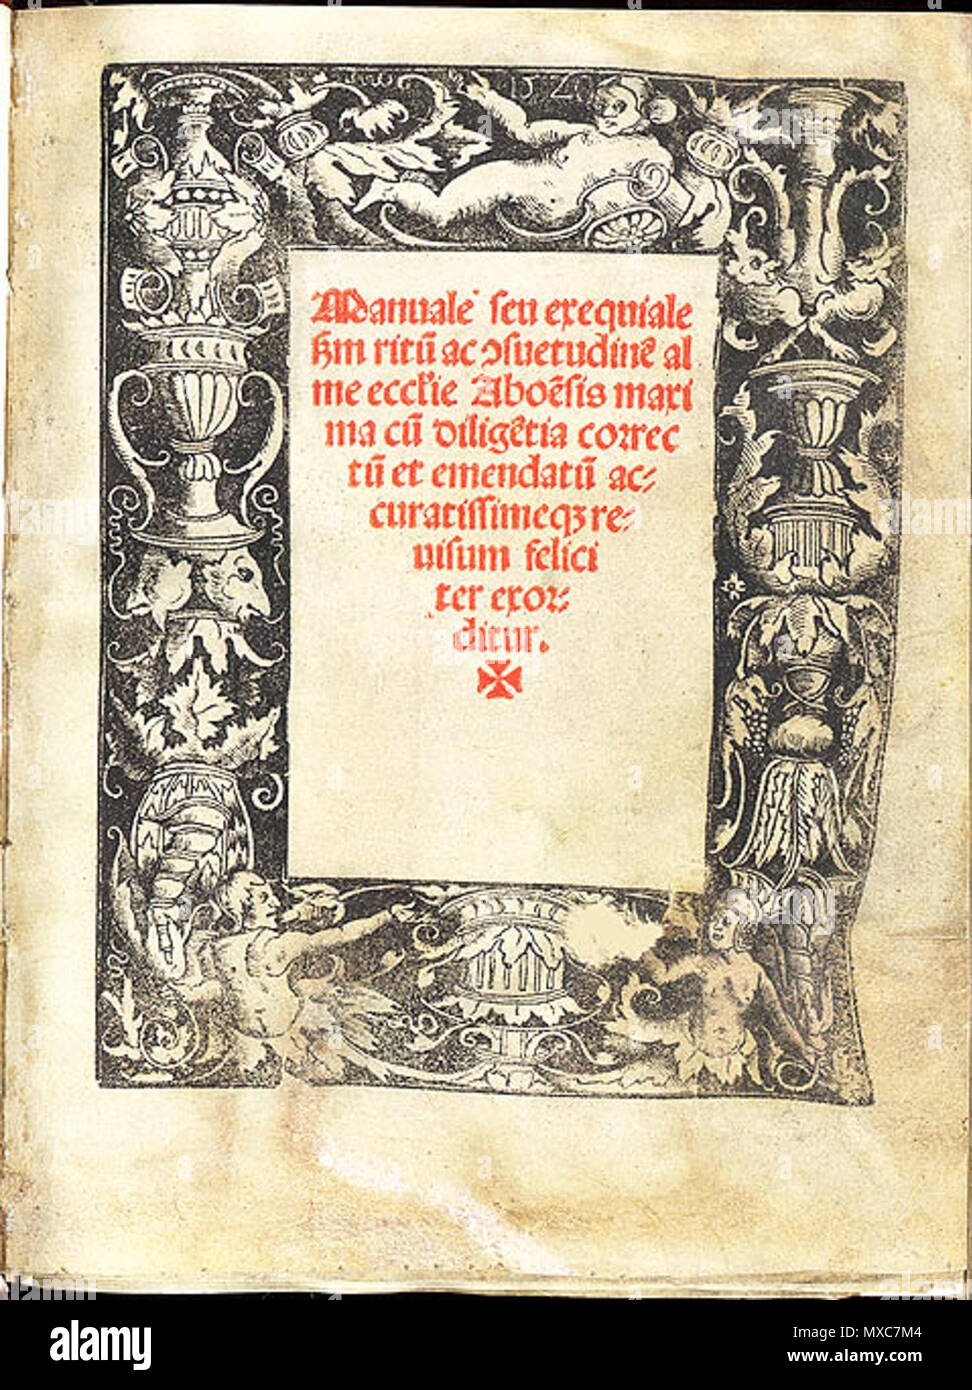 1520
Manuale seu exequiale
ẜm ritū ac ↄsuetudinē al
me eccłie Aboēsis maxi
ma cū diligētia correc
tū et emendatū ac⸗
curatissimeqꝫ re⸗
uisum felici
ter exor⸗
ditur.
alamy
Image ID: MXC7M4
www.alamy.com